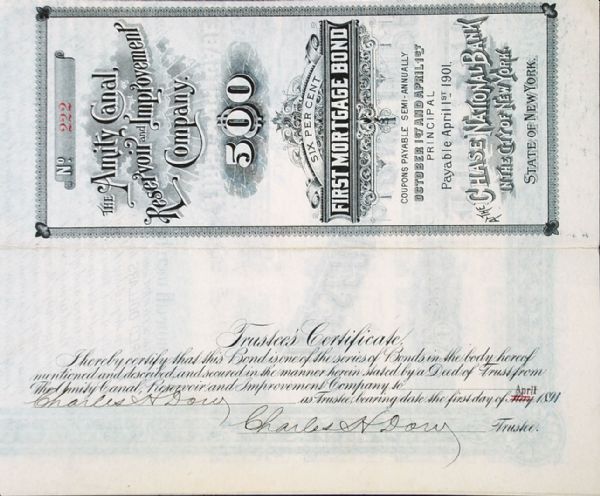 No 222
The Amity Canal
Reservoir and Improvement
Company.
$500
SIX PER CENT
FIRST MORTGAGE BOND
COUPONS PAYABLE SEMI-ANNUALLY
OCTOBER 1ST AND APRIL 1ST
PRINCIPAL
Payable April 1ST 1901.
AT THE CHASE NATIONAL BANK
IN THE CITY OF NEW YORK,
STATE OF NEW YORK.
Trustee's Certificate
I hereby certify that this Bond is one of the series of Bonds in the body hereof
mentioned and described, and secured in the manner herein stated by a Deed of Trust from
The Amity Canal, Reservoir and Improvement Company to
April
Charles H Dow as Trustee, bearing date the first day of May 1891
Charles H Dow Trustee.